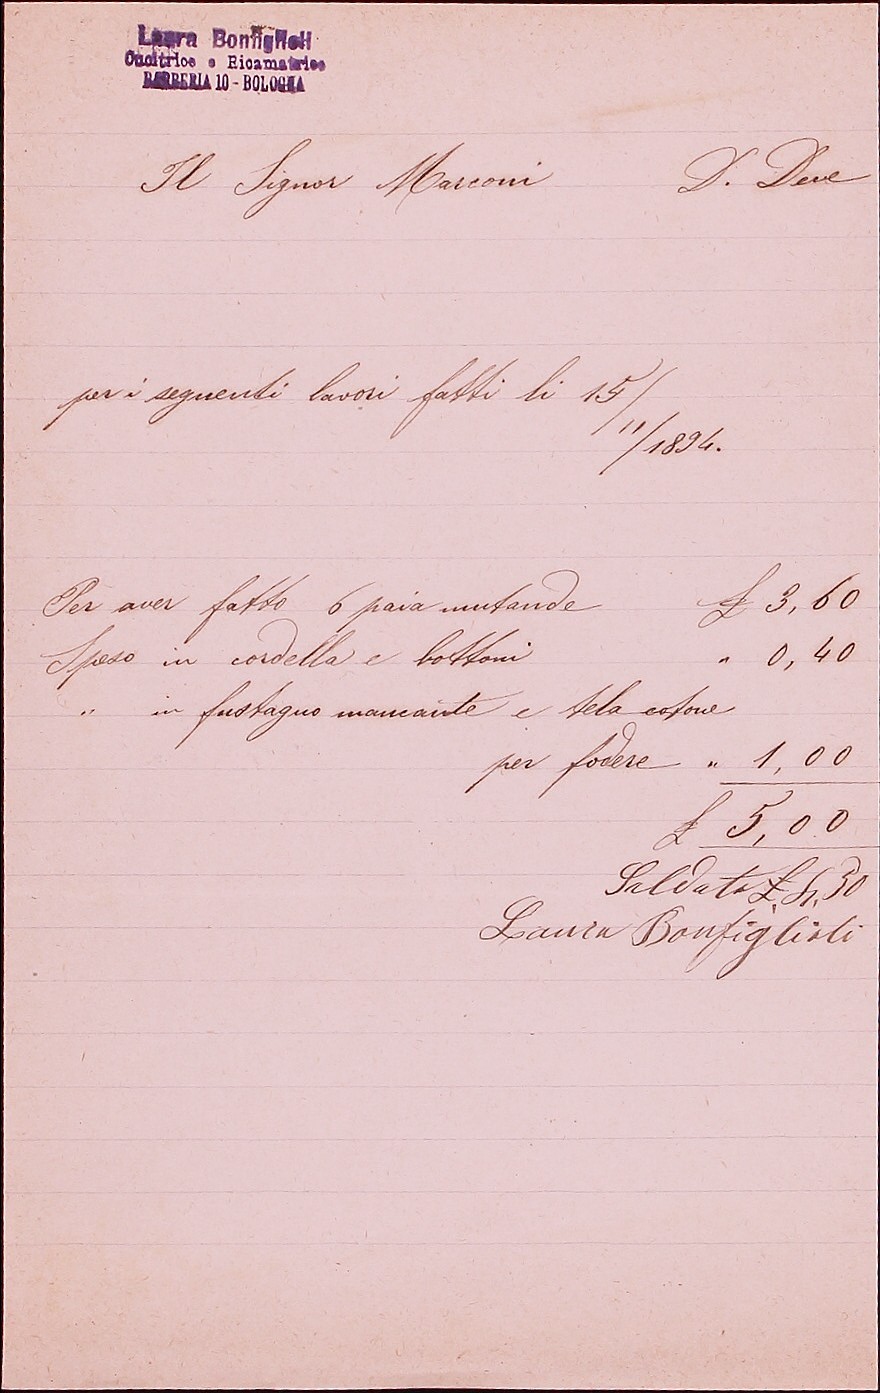 Laura Bonfiglioli
Cucitrice e Ricamatrice
BARBERIA 10 - BOLOGNA
Il Signor Marconi D. Deve
per i seguenti lavori fatti li 15/
11/1894.
Per aver fatto 6 paia mutande £ 3,60
Speso in cordella e bottoni " 0,40
" in fustagno mancante e tela cotone
per fodere " 1,00
£ 5,00
Saldato £ 4,50
Laura Bonfiglioli